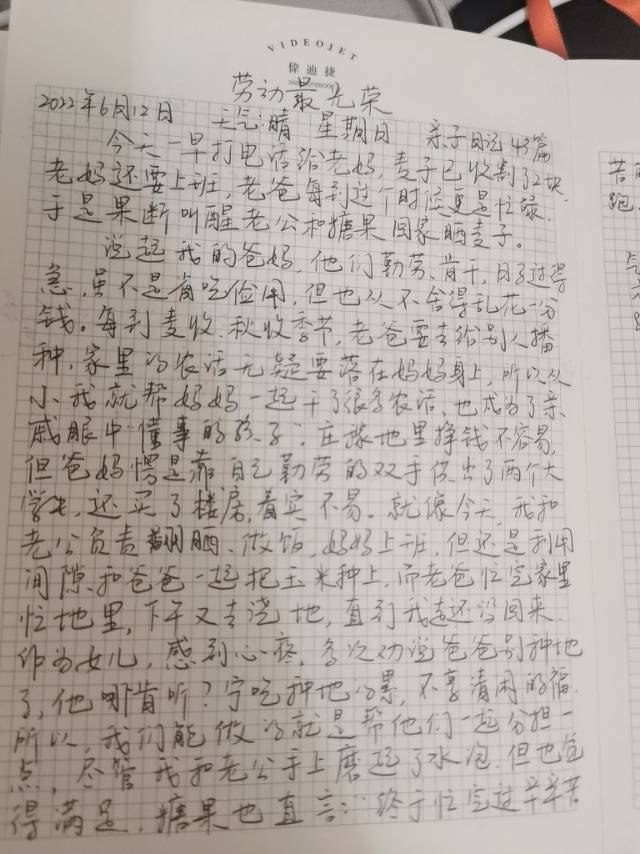 VIDEOJET
偉迪捷
劳动最光荣
2022年6月12日 天气:晴 星期日 亲子日记43篇
今天一早打电话给老妈,麦子已收割了2块,
老妈还要上班,老爸每到这个时候更是忙碌,
于是果断叫醒老公和糖果回家晒麦子。
说起我的爸妈,他们勤劳、肯干,日子过得
急,虽不是省吃俭用,但也从不舍得乱花一分
钱。每到麦收、秋收季节,老爸要去给别人播
种,家里的农活无疑要落在妈妈身上,所以从
小我就帮妈妈一起干了很多农活,也成为了亲
戚眼中“懂事的孩子”。庄稼地里挣钱不容易,
但爸妈愣是靠自己勤劳的双手供出了两个大
学生,还买了楼房,着实不易。就像今天,我和
老公负责翻晒、做饭,妈妈上班,但还是利用
间隙和爸爸一起把玉米种上,而老爸忙完家里
忙地里,下午又去浇地,直到我走还没回来.
作为女儿,感到心疼,多次劝说爸爸别种地
了,他哪肯听?宁吃种地的累,不享清闲的福.
所以,我们能做的就是帮他们一起分担一
点,尽管我和老公手上磨起了水泡,但也觉
得满足,糖果也直言:“终于忙完这辛辛苦
苦
跑